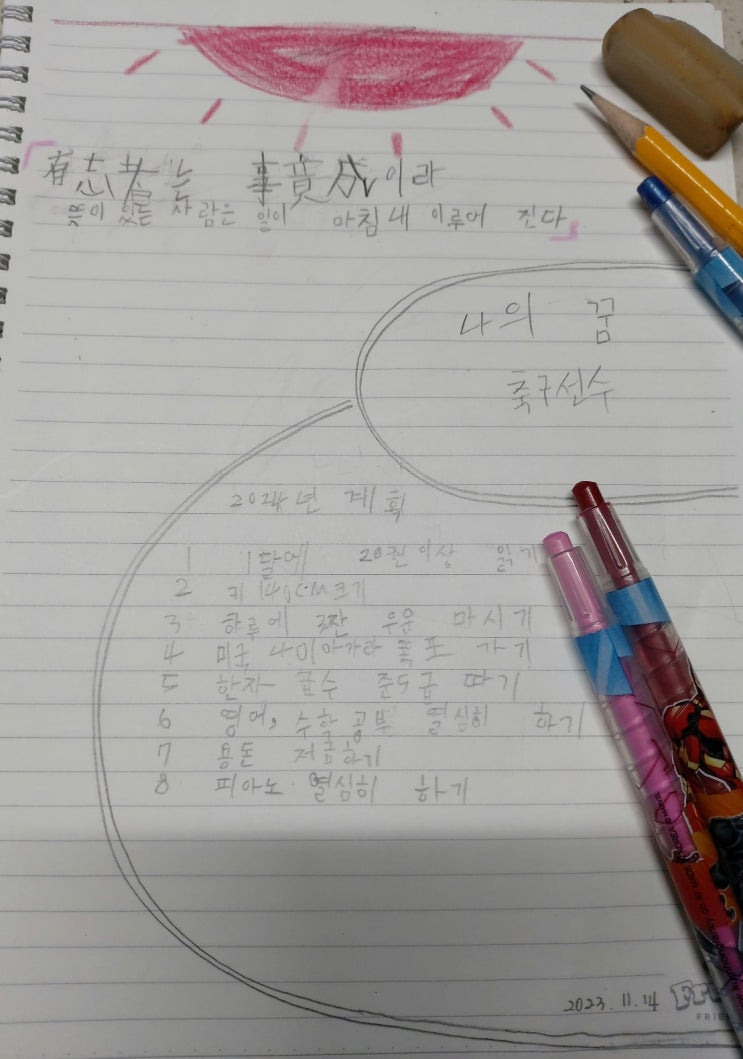 「有志者는 事竟成이라
뜻이 있는 사람은 일이 마침내 이루어 진다」
나의 꿈
축구선수
2024년 계획
1 1달에 20권이상 읽기
2 키 140CM크기
3 하루에 3잔 우유 마시기
4 미국 나이아가라 폭포 가기
5 한자 급수 준5급 따기
6 영어, 수학 공부 열심히 하기
7 용돈 저금하기
8 피아노 열심히 하기
2023.11.14